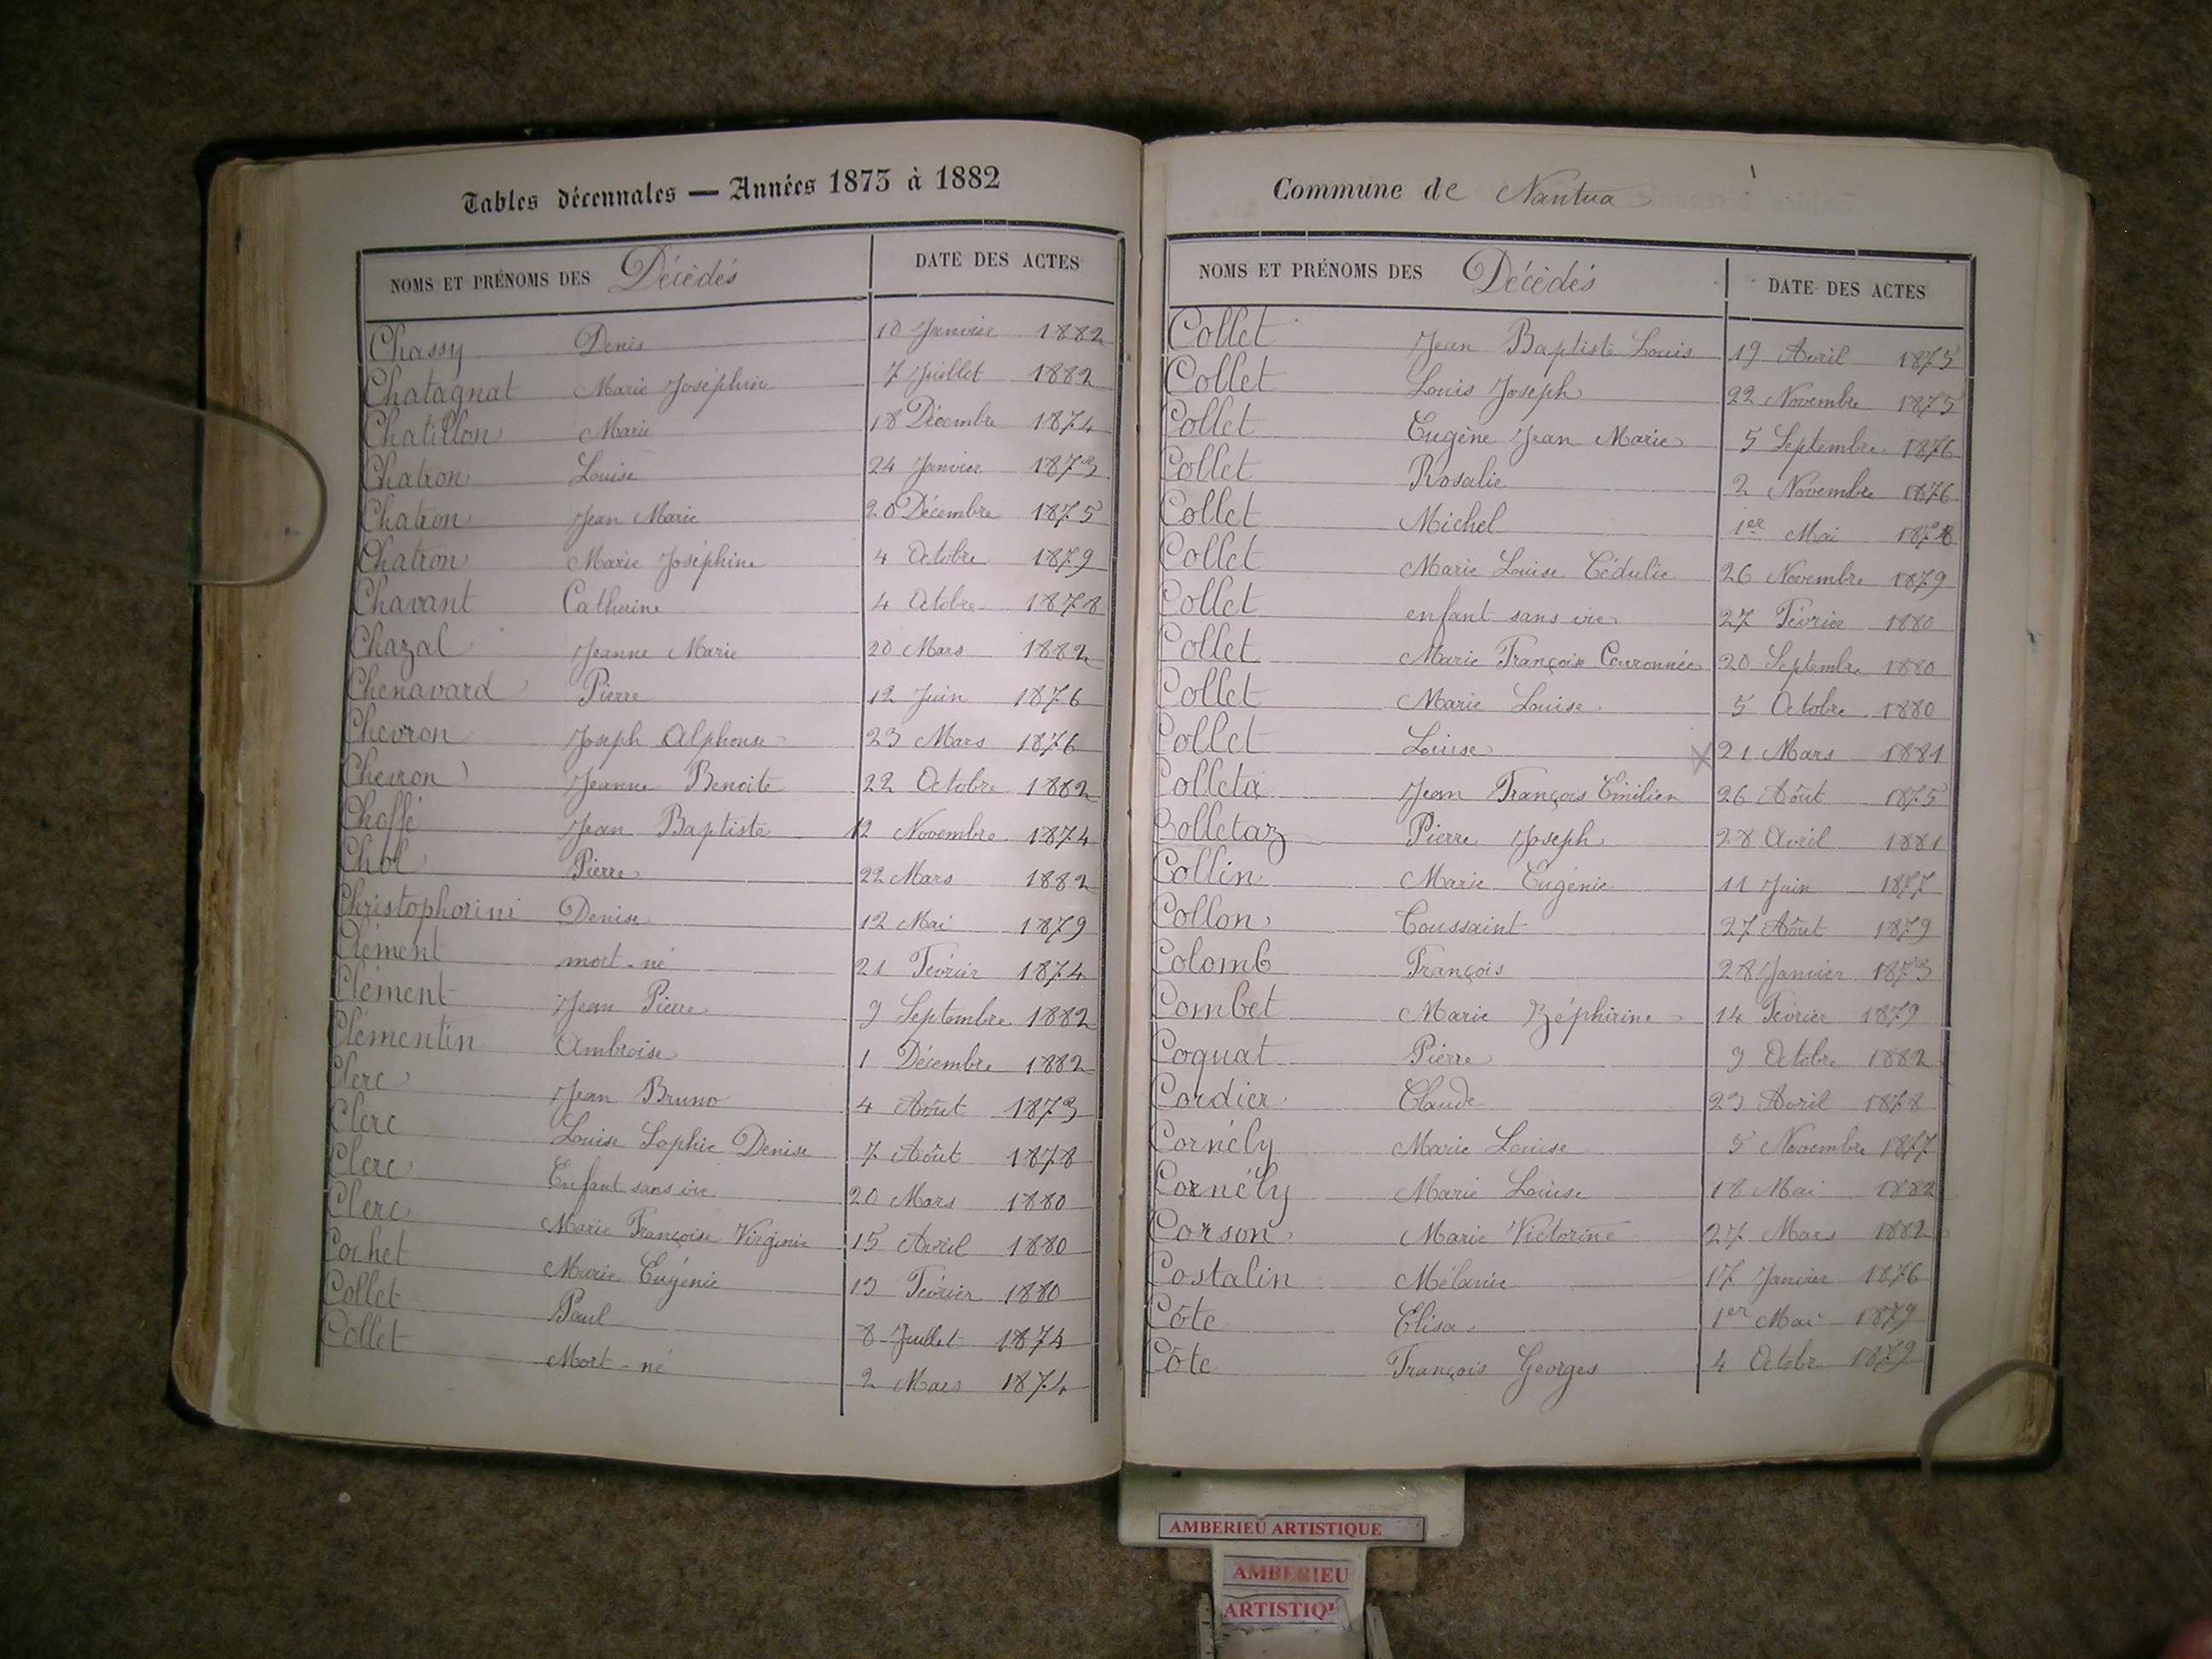 Tables décennales — Années 1873 à 1882
NOMS ET PRÉNOMS DES Décédés DATE DES ACTES
Chassy Denis 10 Janvier 1882
Chatagnat Marie Joséphine 7 Juillet 1882
Chatillon Marie 18 Décembre 1874
Chatron Louise 24 Janvier 1873
Chatron Jean Marie 20 Décembre 1875
Chatron Marie Joséphine 4 Octobre 1879
Chavant Catherine 4 Octobre 1878
Chazal Jeanne Marie 20 Mars 1882
Chenavard Pierre 12 Juin 1876
Chevron Joseph Alphonse 23 Mars 1876
Chevron Jeanne Benoite 22 Octobre 1882
Choffé Jean Baptiste 12 Novembre 1874
Chol Pierre 22 Mars 1882
Christophorini Denise 12 Mai 1879
Clément mort-né 21 Février 1874
Clément Jean Pierre 9 Septembre 1882
Clémentin Ambroise 1 Décembre 1882
Clerc Jean Bruno 4 Août 1873
Clerc Louise Sophie Denise 7 Août 1878
Clerc Enfant sans vie 20 Mars 1880
Clerc Marie Françoise Virginie 15 Avril 1880
Cochet Marie Eugénie 19 Février 1880
Collet Paul 8 Juillet 1874
Collet Mort-né 2 Mars 1874
Commune de Nantua
NOMS ET PRÉNOMS DES Décédés DATE DES ACTES
Collet Jean Baptiste Louis 19 Avril 1875
Collet Louis Joseph 22 Novembre 1875
Collet Eugène Jean Marie 5 Septembre 1876
Collet Rosalie 2 Novembre 1876
Collet Michel 1er Mai 1878
Collet Marie Louise Cédulie 26 Novembre 1879
Collet enfant sans vie 27 Février 1880
Collet Marie Françoise Couronnée 20 Septembre 1880
Collet Marie Louise 5 Octobre 1880
Collet Louise X 21 Mars 1881
Colleta Jean François Emilien 26 Août 1875
Colletaz Pierre Joseph 28 Avril 1881
Collin Marie Eugénie 11 Juin 1877
Collon Toussaint 27 Août 1879
Colomb François 28 Janvier 1873
Combet Marie Zéphirine 14 Février 1879
Coquat Pierre 9 Octobre 1882
Cordier Claude 23 Avril 1878
Cornély Marie Louise 5 Novembre 1877
Cornély Marie Louise 18 Mai 1882
Corson Marie Victorine 27 Mars 1882
Costalin Mélanie 17 Janvier 1876
Côte Elisa 1er Mai 1879
Côte François Georges 4 Octobre 1879
AMBERIEU ARTISTIQUE
AMBERIEU
ARTISTIQU